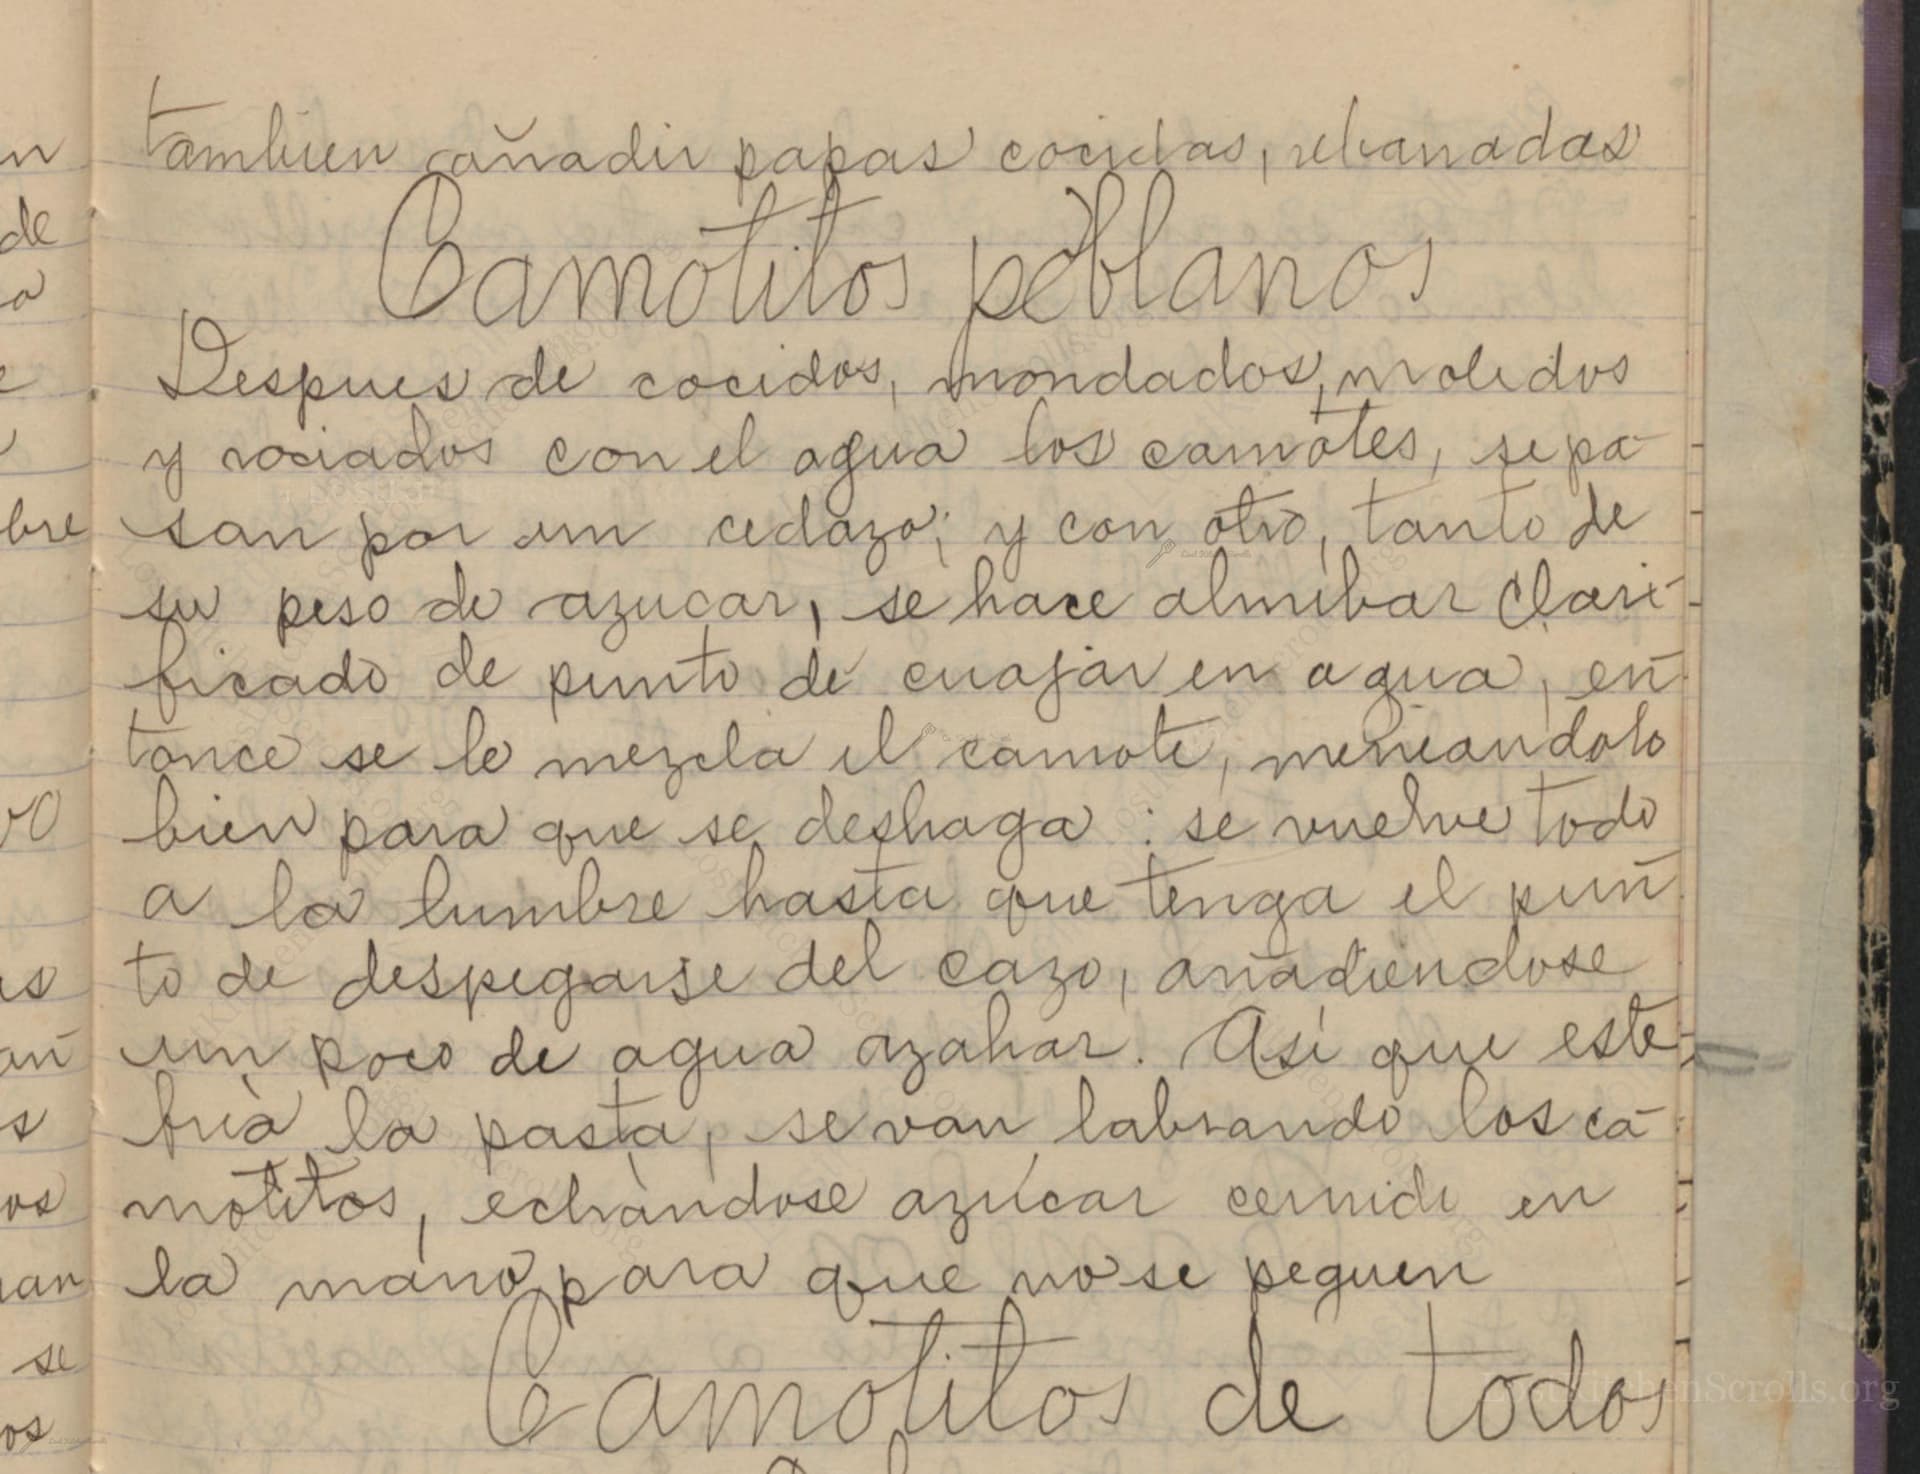 tambien añadir papas cocidas, rebanadas
Camotitos poblanos
Despues de cocidos, mondados, molidos
y rociados con el agua los camotes, se pa-
san por un cedazo; y con otro, tanto de
su peso de azucar, se hace almibar clari-
ficado de punto de cuajar en agua, en-
tonce se le mezcla el camote, meneandolo
bien para que se deshaga : se vuelve todo
a la lumbre hasta que tenga el pun-
to de despegarse del cazo, añadiendose
un poco de agua azahar. Así que este
fria la pasta, se van labrando los ca-
motitos, echandose azúcar cernida en
la mano, para que no se peguen
Camotitos de todos
LostKitchenScrolls.org